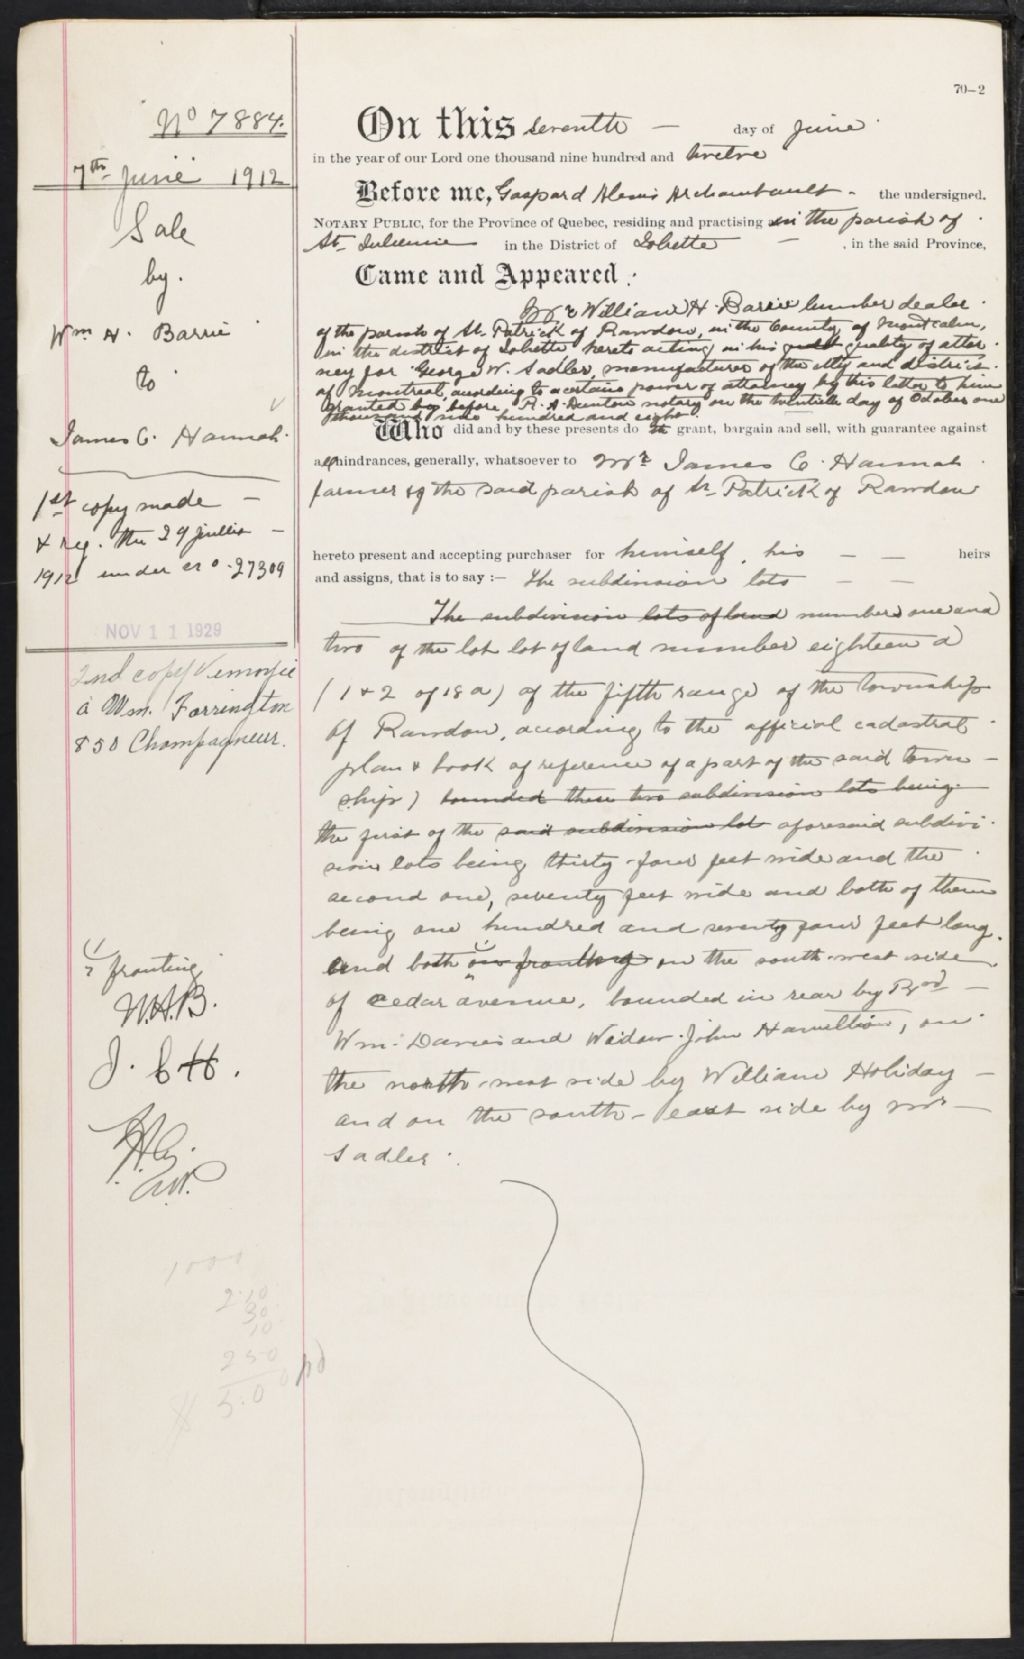 70-2
No 7884.
7th June 1912
Sale
by.
Wm H. Barrie
to
James C. Hannah.
1st copy made —
& reg. the 29 juillet —
1912 under no. 27309
NOV 11 1929
2nd copy
à Wm. Farrington
850 Champagneur.
fronting
W.H.B.
J. C. H.
1000
2.10
30
10
250
$ 5.00 pd
On this seventh — day of June
in the year of our Lord one thousand nine hundred and twelve
Before me, Gaspard Alexis Archambault - the undersigned,
NOTARY PUBLIC, for the Province of Quebec, residing and practising in the parish of
St. Julienne in the District of Joliette — , in the said Province,
Came and Appeared :
Mr William H. Barrie lumber dealer
of the parish of St. Patrick of Rawdon, in the County of Montcalm,
in the district of Joliette hereto acting in his quality of attor
ney for George W. Sadler, manufacturer of the city and district
of Montreal, according to a certain power of attorney by this latter to him
granted before R. A. Dunton notary on the twentieth day of October one
thousand nine hundred and eight
Who did and by these presents do grant, bargain and sell, with guarantee against
all hindrances, generally, whatsoever to Mr James C. Hannah
farmer of the said parish of St. Patrick of Rawdon
hereto present and accepting purchaser for himself, his — — heirs
and assigns, that is to say :— The subdivision lots — —
The subdivision lots of land number one and
two of the lot lot of land number eighteen a
(1 & 2 of 18a) of the fifth range of the township
of Rawdon, according to the official cadastral
plan & book of reference of a part of the said town -
ship) bounded these two subdivision lots being
the first of the said subdivision lot aforesaid subdivi-
sion lots being thirty-four feet wide and the
second one, seventy feet wide and both of them
being one hundred and seventy four feet long.
and both fronting on the south-west side
of Cedar avenue, bounded in rear by
Wm. Davies and Widow John Hamilton, on
the north-west side by William Holiday —
and on the south-east side by Mr —
Sadler.